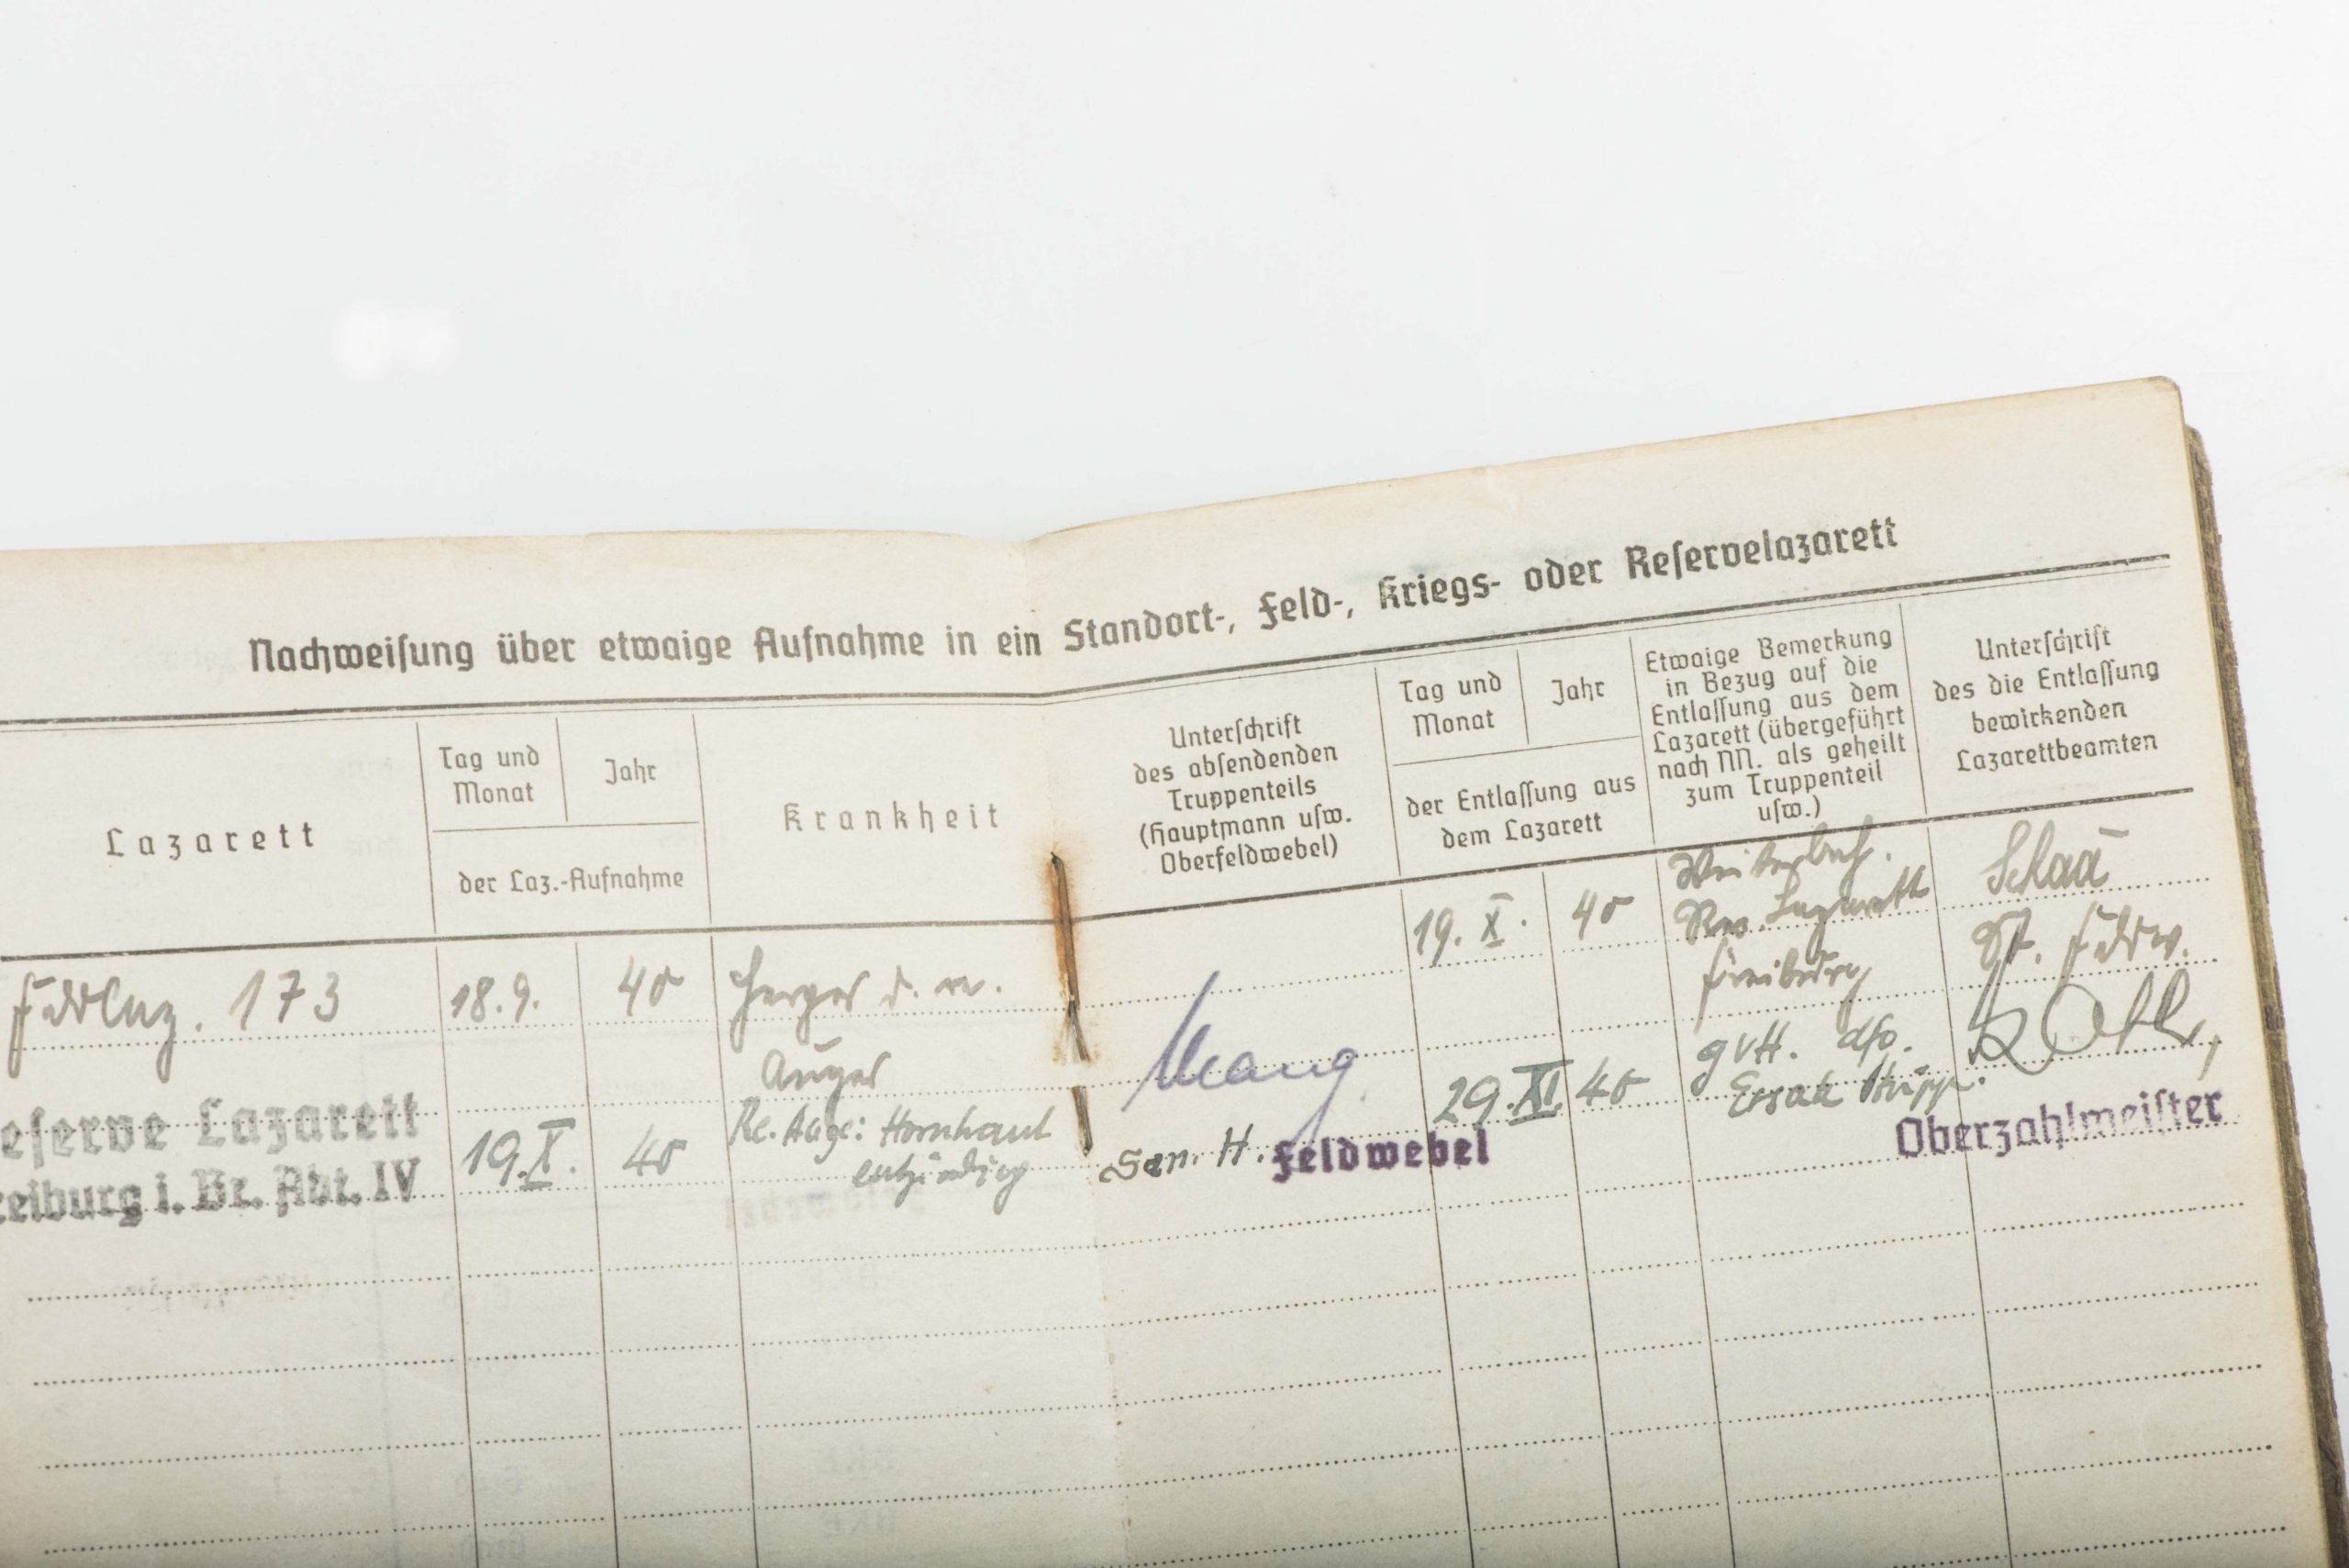 Nachweisung über etwaige Aufnahme in ein Standort-, Feld-, Kriegs- oder Reservelazarett
Lazarett
Tag und
Monat
Jahr
der Laz.-Aufnahme
Krankheit
Unterschrift
des absendenden
Truppenteils
(Hauptmann usw.
Oberfeldwebel)
Tag und
Monat
Jahr
der Entlassung aus
dem Lazarett
Etwaige Bemerkung
in Bezug auf die
Entlassung aus dem
Lazarett (übergeführt
nach NN. als geheilt
zum Truppenteil
usw.)
Unterschrift
des die Entlassung
bewirkenden
Lazarettbeamten
Feldlaz. 173
18.9.
40
Herpes d. re.
Auges
19. X.
40
Weiterbeh.
Res. Lazarett
Freiburg
Schaa
Feldw.
eserve Lazarett
reiburg i. Br. Abt. IV
19. X.
40
Re. Auge: Hornhaut
entzündung
San. H. Feldwebel
29. XI.
40
gvH.
Ersatz
Oberzahlmeister